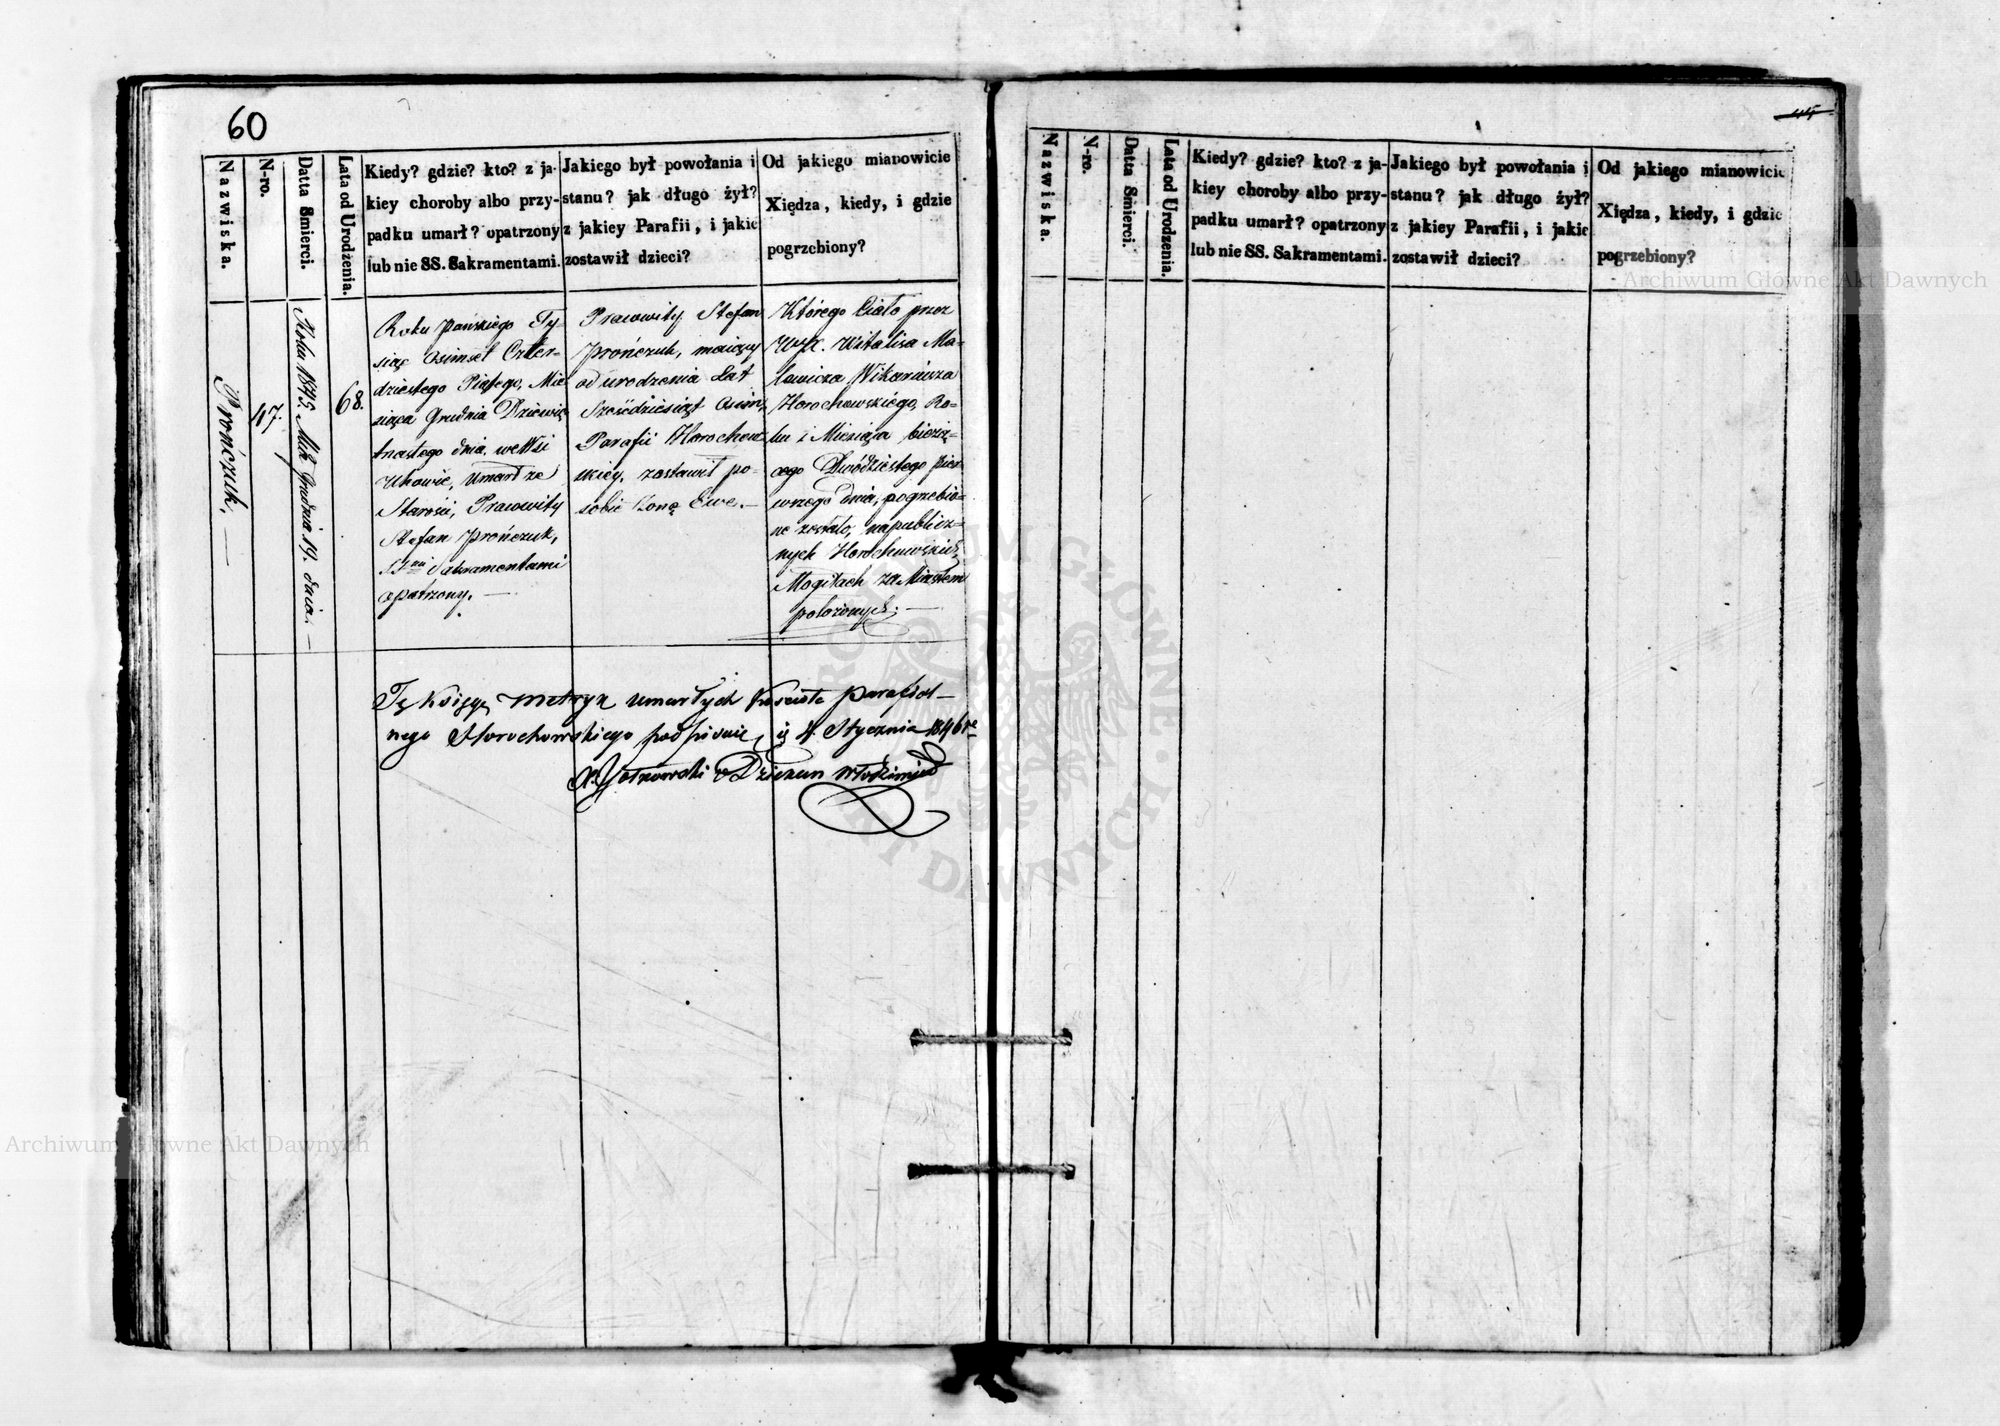 60
Nazwiska.
N-ro.
Datta Smierci.
Lata od Urodzenia.
Kiedy? gdzie? kto? z ja-
kiey choroby albo przy-
padku umarł? opatrzony
lub nie SS. Sakramentami.
Jakiego był powołania i
stanu? jak długo żył?
z jakiey Parafii, i jakie
zostawił dzieci?
Od jakiego mianowicie
Xiędza, kiedy, i gdzie
pogrzebiony?
Prończuk,
47.
Roku 1845 Mca Grudnia 19. dnia.
68.
Roku Pańskiego Ty-
siąc Osimset Czter-
dziestego Piątego, Mie-
siąca Grudnia Dziewię-
tnastego dnia, we Wsi
umarł ze
Starości, Pracowity
Stefan Prończuk,
Sakramentami
opatrzony.
Pracowity Stefan
Prończuk, maiący
od urodzenia Lat
Sześćdziesiąt Osim,
Parafii Horochow-
skiey, zostawił po
sobie Żonę Ewę.
Którego Ciało przez
WJX. Witalisa Ma-
lewicza Wikariusza
Horochowskiego, Ro-
ku i Miesiąca bieżą-
cego Dwódziestego Pier-
wszego dnia, pogrzebio-
ne zostało, na publicz-
nych Horochowskich
Mogiłach za Miastem
położonych.
Tę Księgę metryk umarłych Kościoła Parafial-
nego Horochowskiego podpisuię, 4. Stycznia 1846 r.
Dziekan Włodzimir
Nazwiska.
N-ro.
Datta Smierci.
Lata od Urodzenia.
Kiedy? gdzie? kto? z ja-
kiey choroby albo przy-
padku umarł? opatrzony
lub nie SS. Sakramentami.
Jakiego był powołania i
stanu? jak długo żył?
z jakiey Parafii, i jakie
zostawił dzieci?
Od jakiego mianowicie
Xiędza, kiedy, i gdzie
pogrzebiony?
Archiwum Główne Akt Dawnych
ARCHIWUM GŁÓWNE AKT DAWNYCH
Archiwum Główne Akt Dawnych